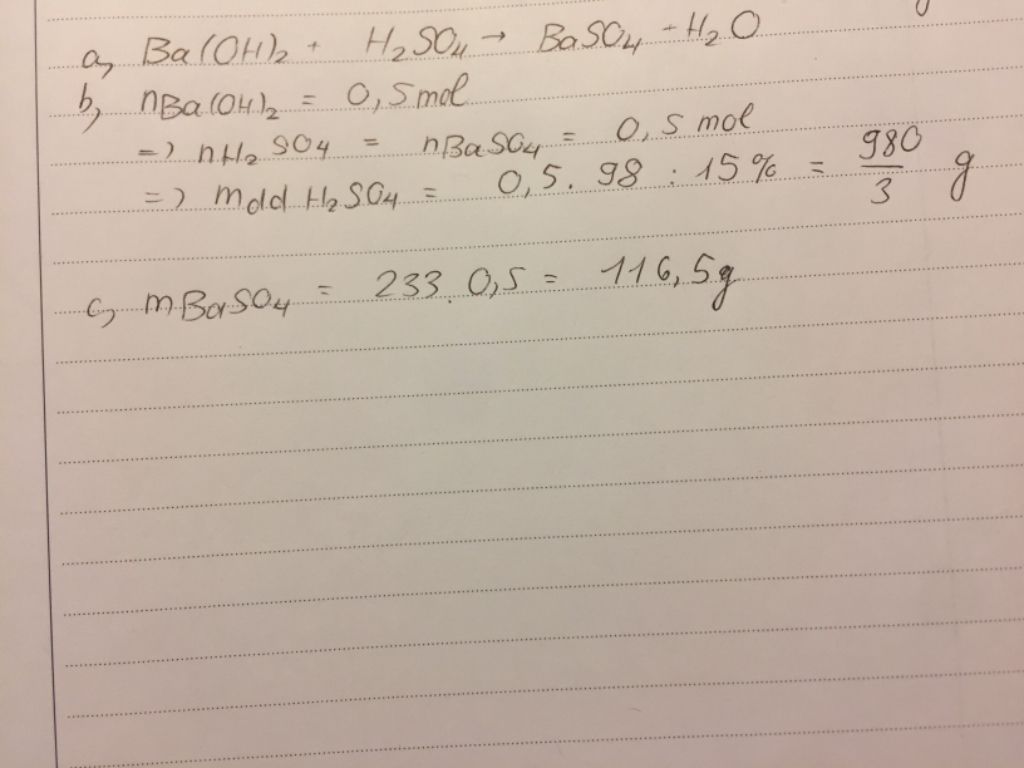 a, Ba(OH)₂ + H₂SO₄ → BaSO₄ - H₂O
b, nBa(OH)₂ = 0,5 mol
=) nH₂SO₄ = nBaSO₄ = 0,5 mol
=) mdd H₂SO₄ = 0,5 . 98 : 15% = 980/3 g
c, mBaSO₄ = 233 . 0,5 = 116,5g